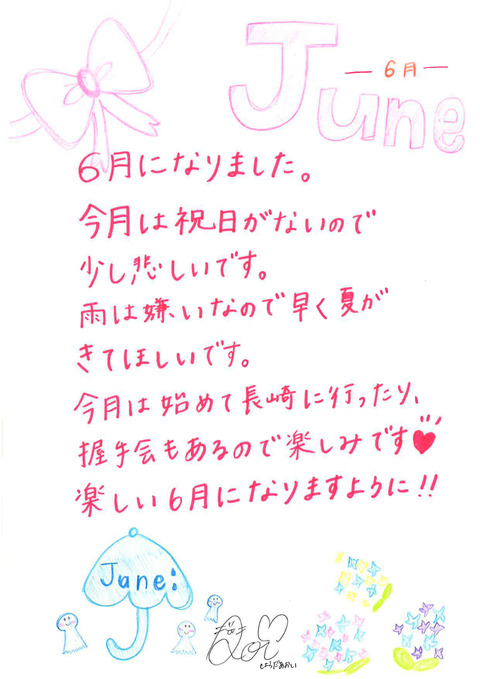 June
— 6月 —
6月になりました。
今月は祝日がないので
少し悲しいです。
雨は嫌いなので早く夏が
きてほしいです。
今月は始めて長崎に行ったり、
握手会もあるので楽しみです♥
楽しい6月になりますように!!
June
しょうだあかい